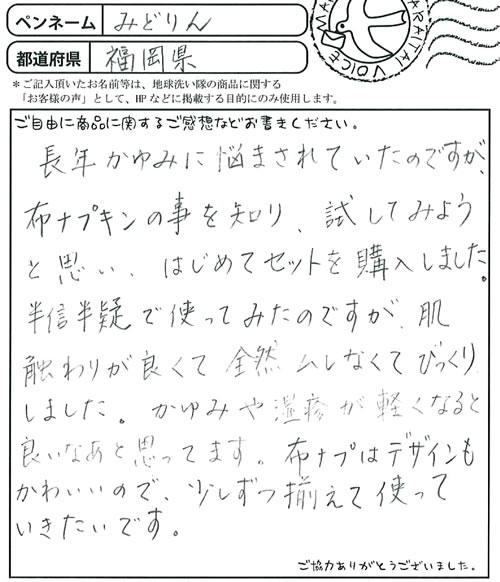 ペンネーム みどりん
都道府県 福岡県
＊ご記入頂いたお名前等は、地球洗い隊の商品に関する
「お客様の声」として、HPなどに掲載する目的にのみ使用します。
ご自由に商品に関するご感想などお書きください。
長年かゆみに悩まされていたのですが、
布ナプキンの事を知り、試してみよう
と思い、はじめてセットを購入しました。
半信半疑で使ってみたのですが、肌
触わりが良くて全然ムレなくてびっくり
しました。かゆみや湿疹が軽くなると
良いなあと思ってます。布ナプはデザインも
かわいいので、少しずつ揃えて使って
いきたいです。
ご協力ありがとうございました。